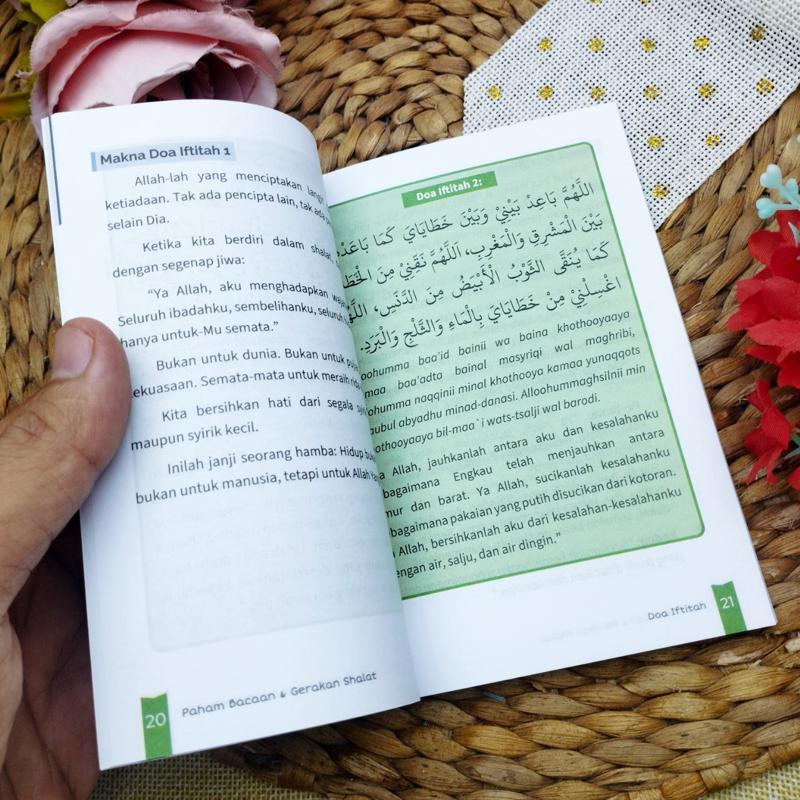 Makna Doa Iftitah 1
Allah-lah yang menciptakan
ketiadaan. Tak ada pencipta lain, tak ada
selain Dia.
Ketika kita berdiri dalam shalat,
dengan segenap jiwa:
"Ya Allah, aku menghadapkan
Seluruh ibadahku, sembelihanku, seluruh
hanya untuk-Mu semata."
Bukan untuk dunia. Bukan untuk
kekuasaan. Semata-mata untuk meraih
Kita bersihkan hati dari segala
maupun syirik kecil.
Inilah janji seorang hamba: Hidup
bukan untuk manusia, tetapi untuk Allah
20
Paham Bacaan & Gerakan Shalat
Doa Iftitah 2:
اللَّهُمَّ بَاعِدْ بَيْنِيْ وَبَيْنَ خَطَايَايَ كَمَا
بَيْنَ الْمَشْرِقِ وَالْمَغْرِبِ، اَللَّهُمَّ نَقِّنِيْ مِنَ
كَمَا يُنَقَّى الثَّوْبُ الْأَبْيَضُ مِنَ الدَّنَسِ،
اغْسِلْنِيْ مِنْ خَطَايَايَ بِالْمَاءِ وَالثَّلْجِ وَالْبَرَدِ.
baa'id bainii wa baina khothooyaaya
baa'adta bainal masyriqi wal maghribi,
naqqinii minal khothooya kamaa yunaqqots
abyadhu minad-danasi. Alloohummaghsilnii min
bil-maa`i wats-tsalji wal barodi.
Allah, jauhkanlah antara aku dan kesalahanku
Engkau telah menjauhkan antara
dan barat. Ya Allah, sucikanlah kesalahanku
pakaian yang putih disucikan dari kotoran.
Allah, bersihkanlah aku dari kesalahan-kesalahanku
air, salju, dan air dingin."
Doa Iftitah
21